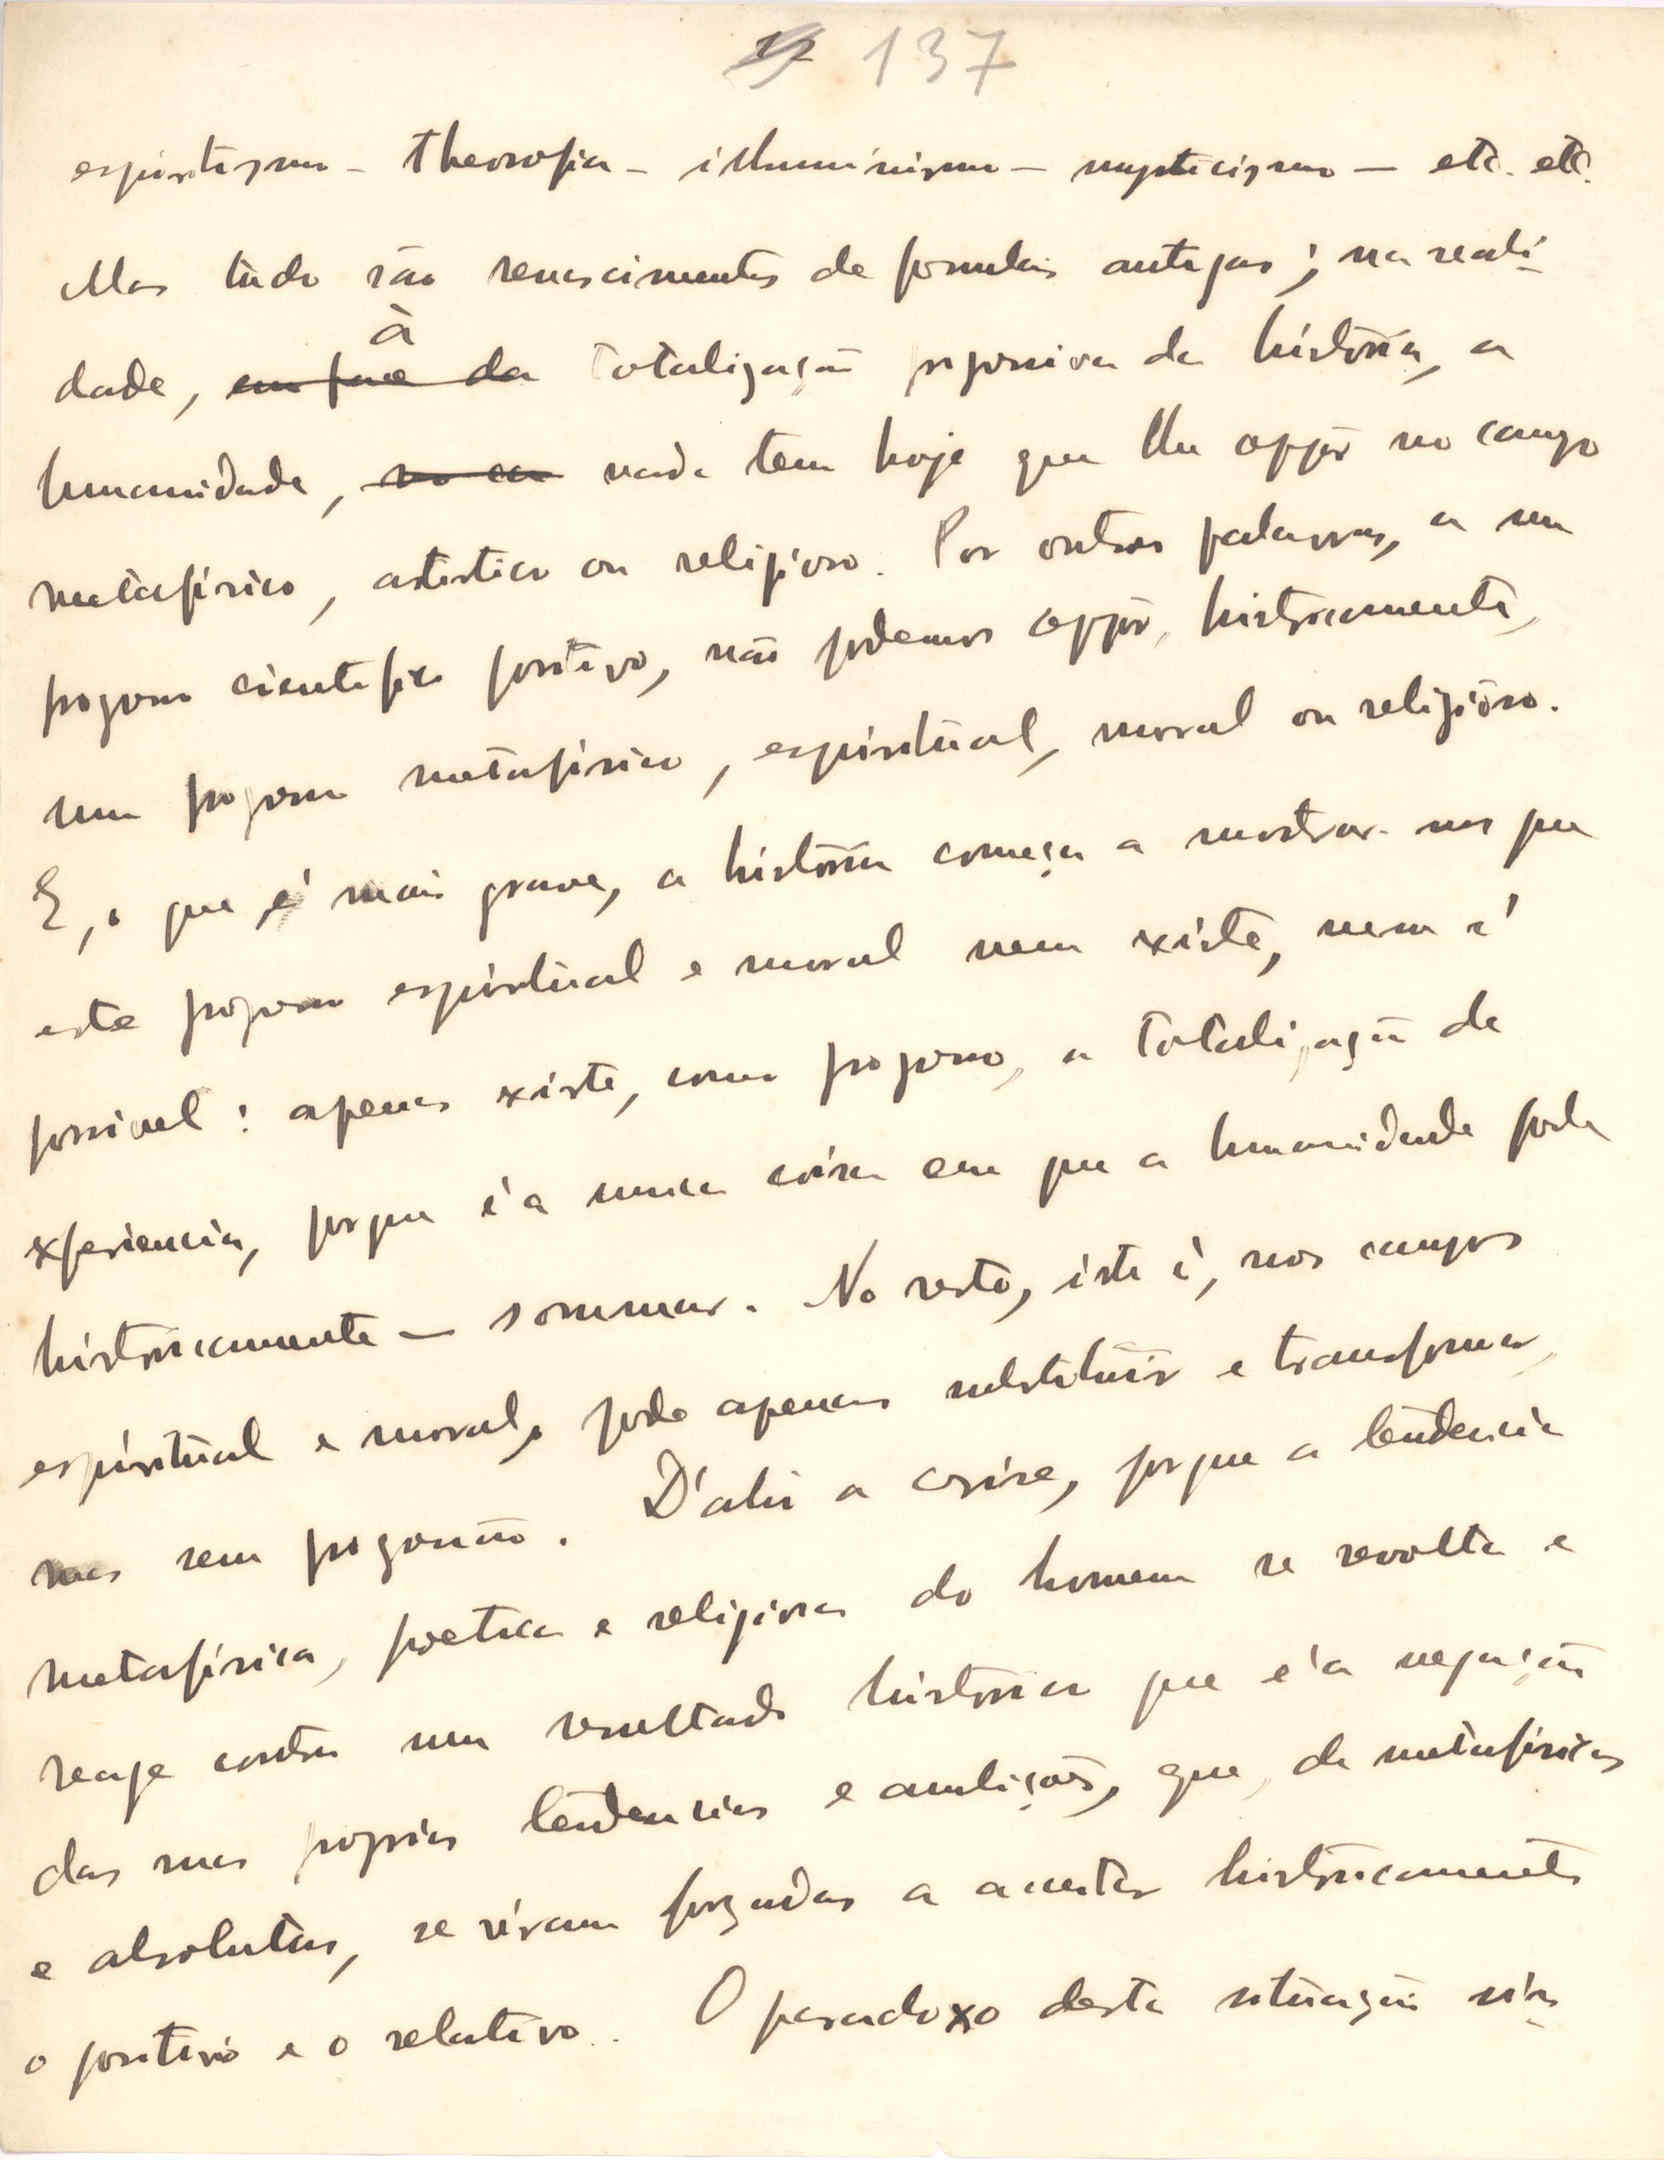 137
espiritismo - theosofia - illuminismo - mysticismo - etc. etc.
Mas tudo são renascimentos de formulas antigas; na reali-
dade, em face da à totalização progressiva da história, a
humanidade, no ca nada tem hoje que lhe oppôr no campo
metafísico, artistico ou religioso. Por outras palavras, a um
progresso cientifico positivo, não podemos oppôr, historicamente,
um progresso metafísico, espiritual, moral ou religioso.
E, o que é mais grave, a história começa a mostrar-nos que
este progresso espiritual e moral nem existe, nem é
possivel: apenas existe, como progresso, a totalização da
experiencia, porque é a unica coisa em que a humanidade pode
historicamente - sommar. No resto, isto é, nos campos
espiritual e moral, pode apenas substituir e transformar,
mas sem progressão. D'ahi a crise, porque a tendencia
metafísica, poetica e religiosa do homem se revolta e
reage contra um resultado historico que é a negação
das suas proprias tendencias e ambições, que, de metafísicas
e absolutas, se viram forçadas a aceitar historicamente
o positivo e o relativo. O paradoxo desta situação